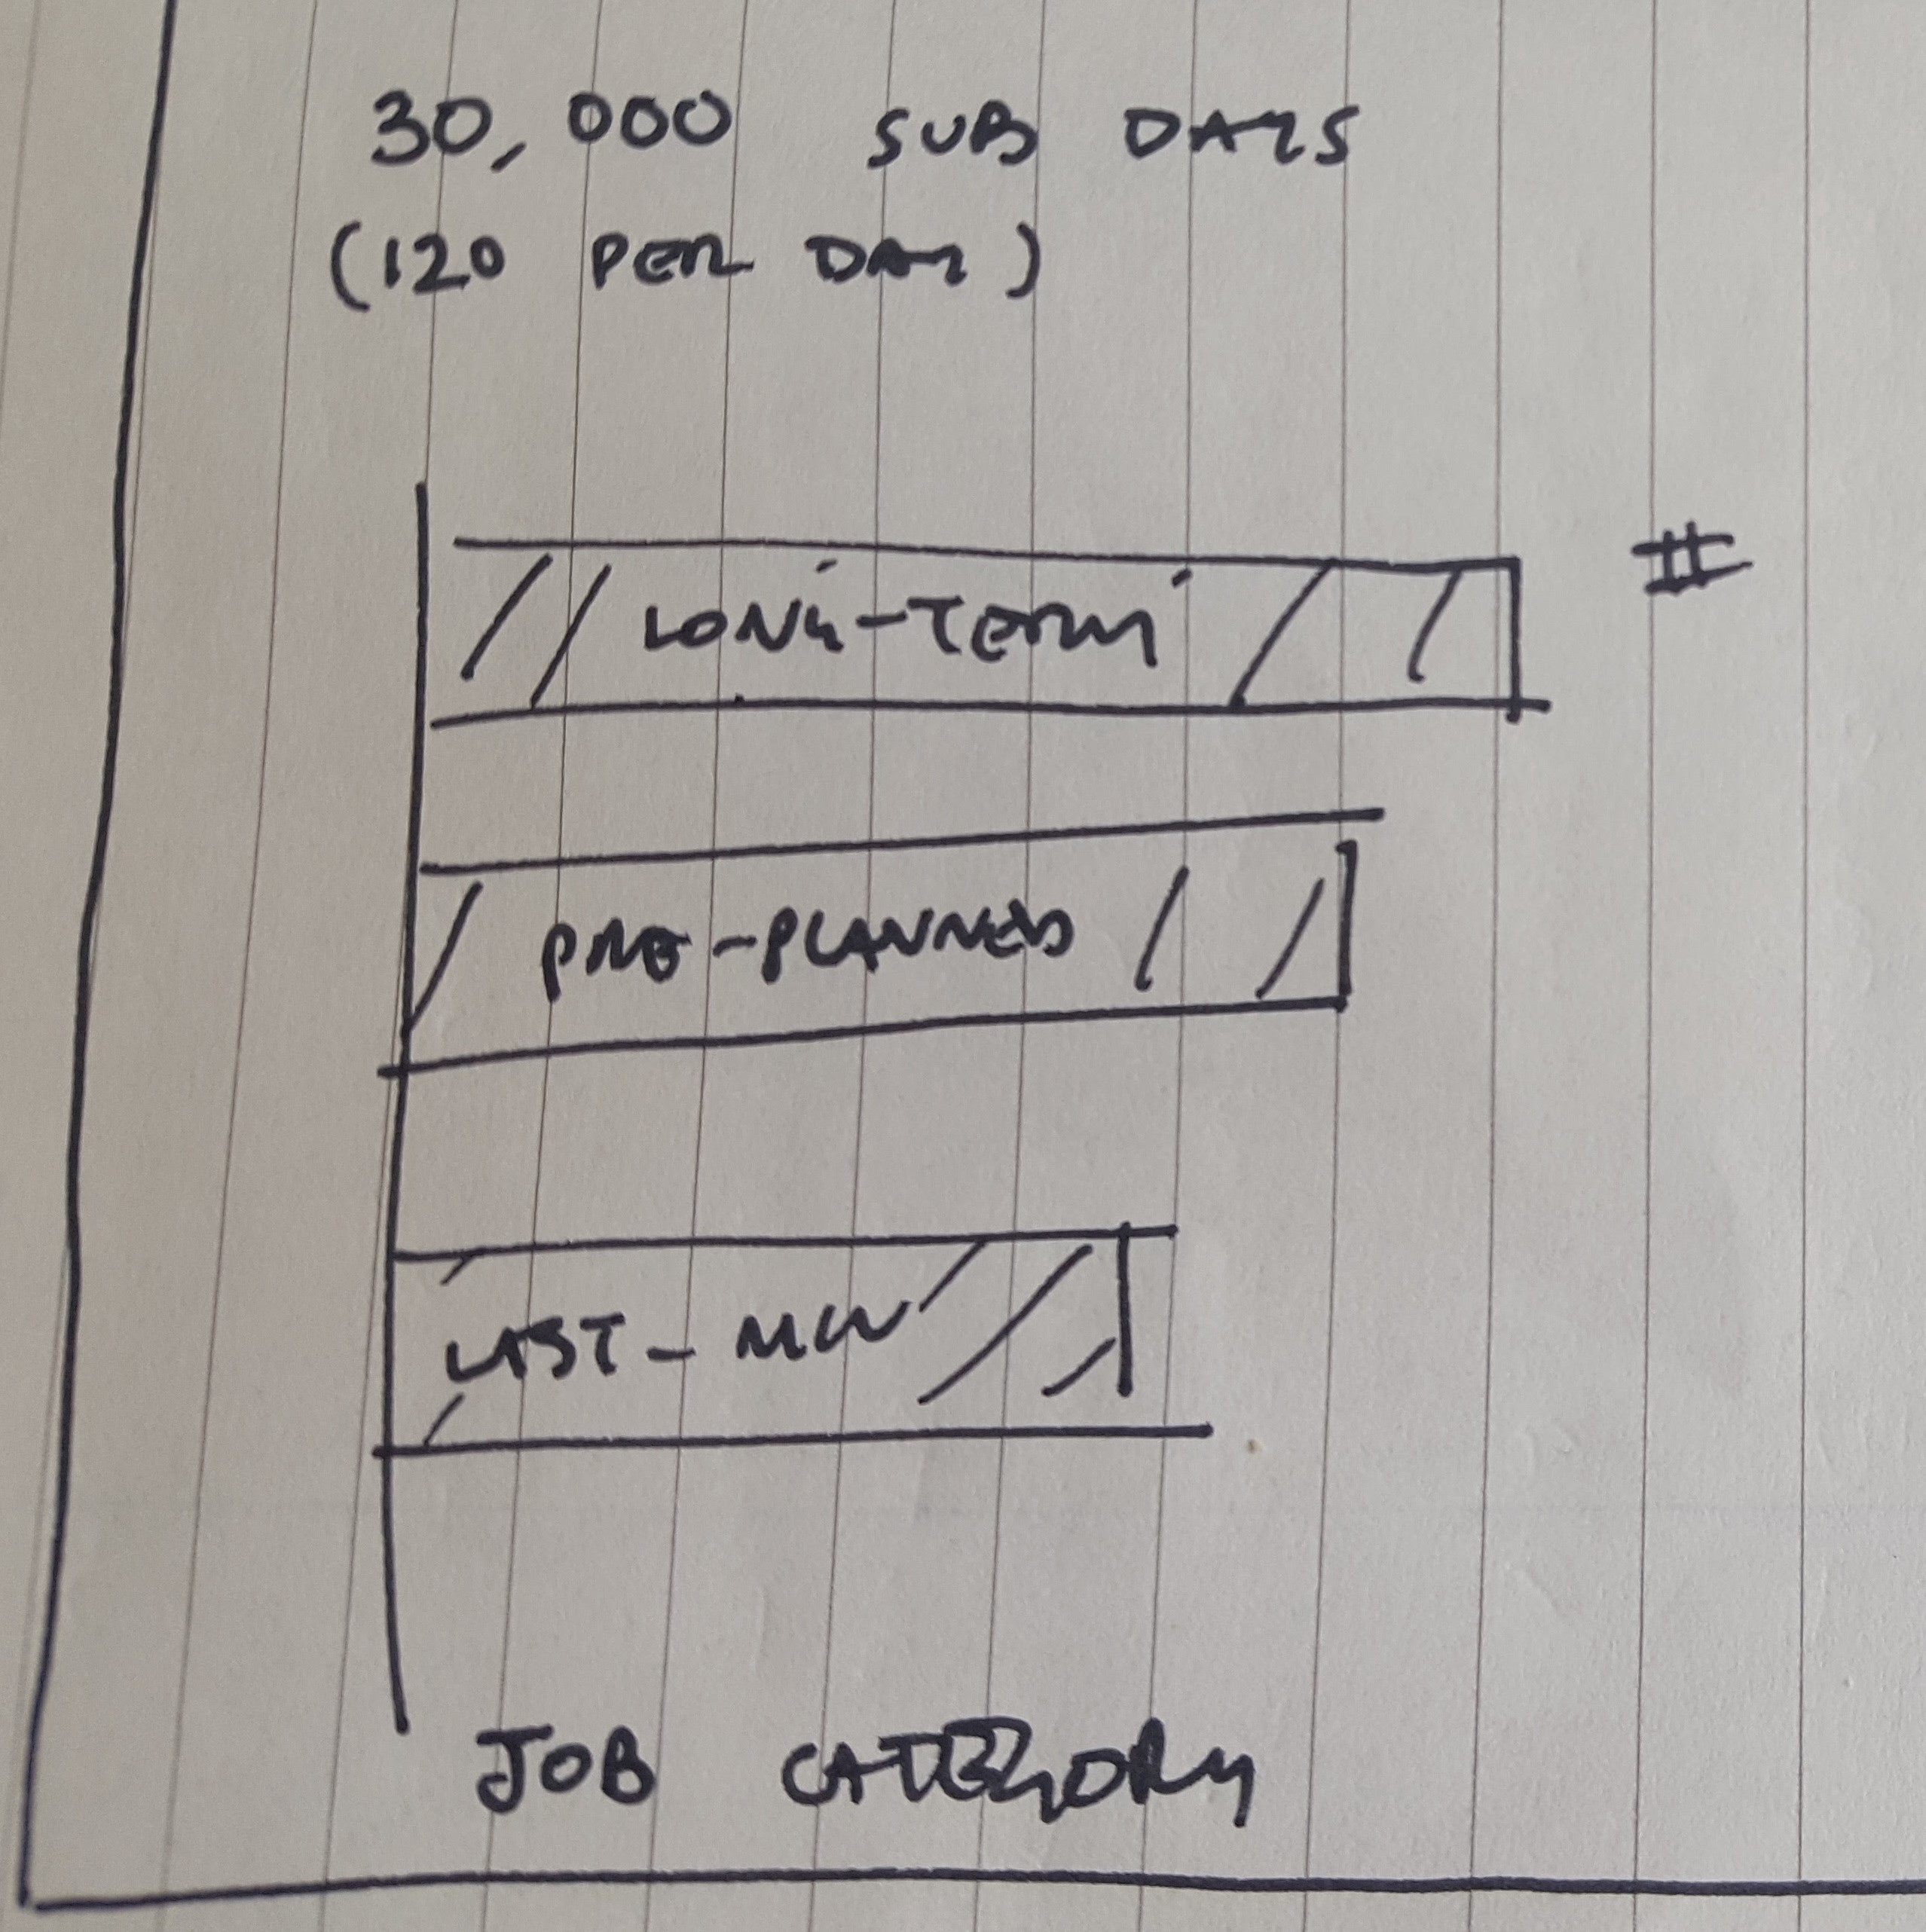 30,000 SUB DAYS
(120 PER DAY)
LONG-TERM
#
PRE-PLANNED
LAST-MIN
JOB CATEGORY